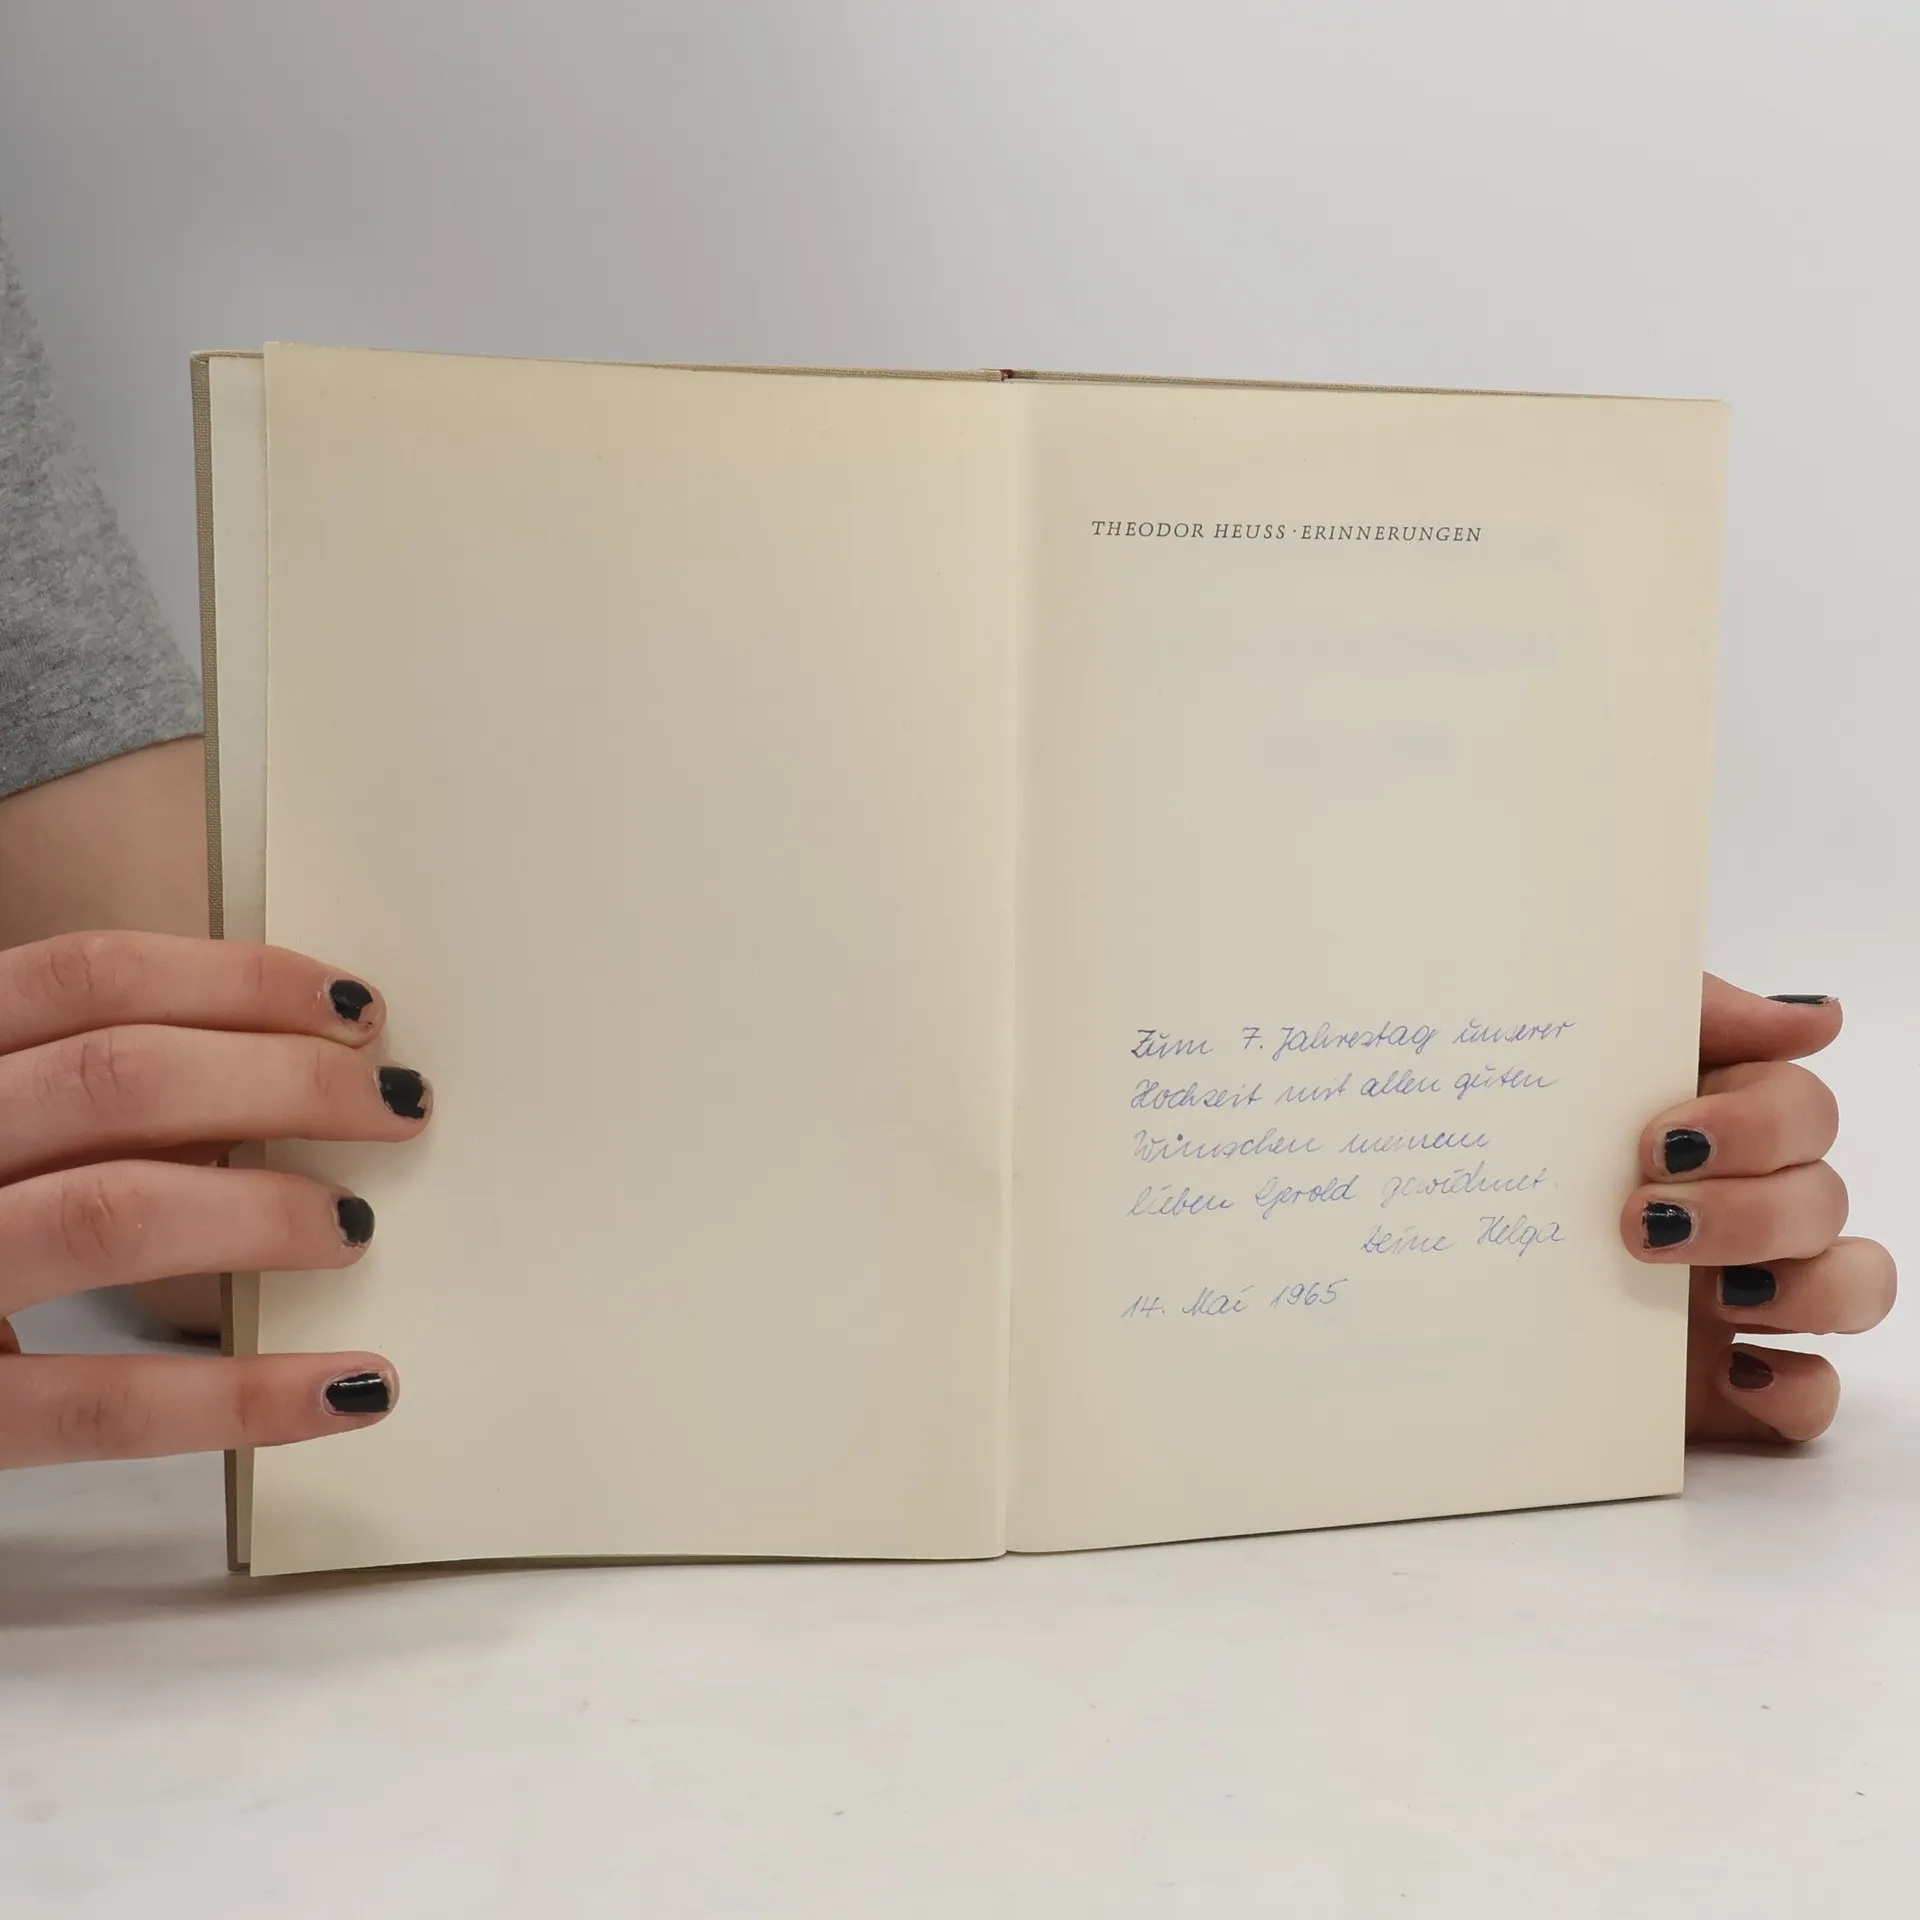 THEODOR HEUSS · ERINNERUNGEN
Zum 7. Jahrestag unserer
Hochzeit mit allen guten
Wünschen meinem
lieben Gerold gewidmet.
Deine Helga
14. Mai 1965